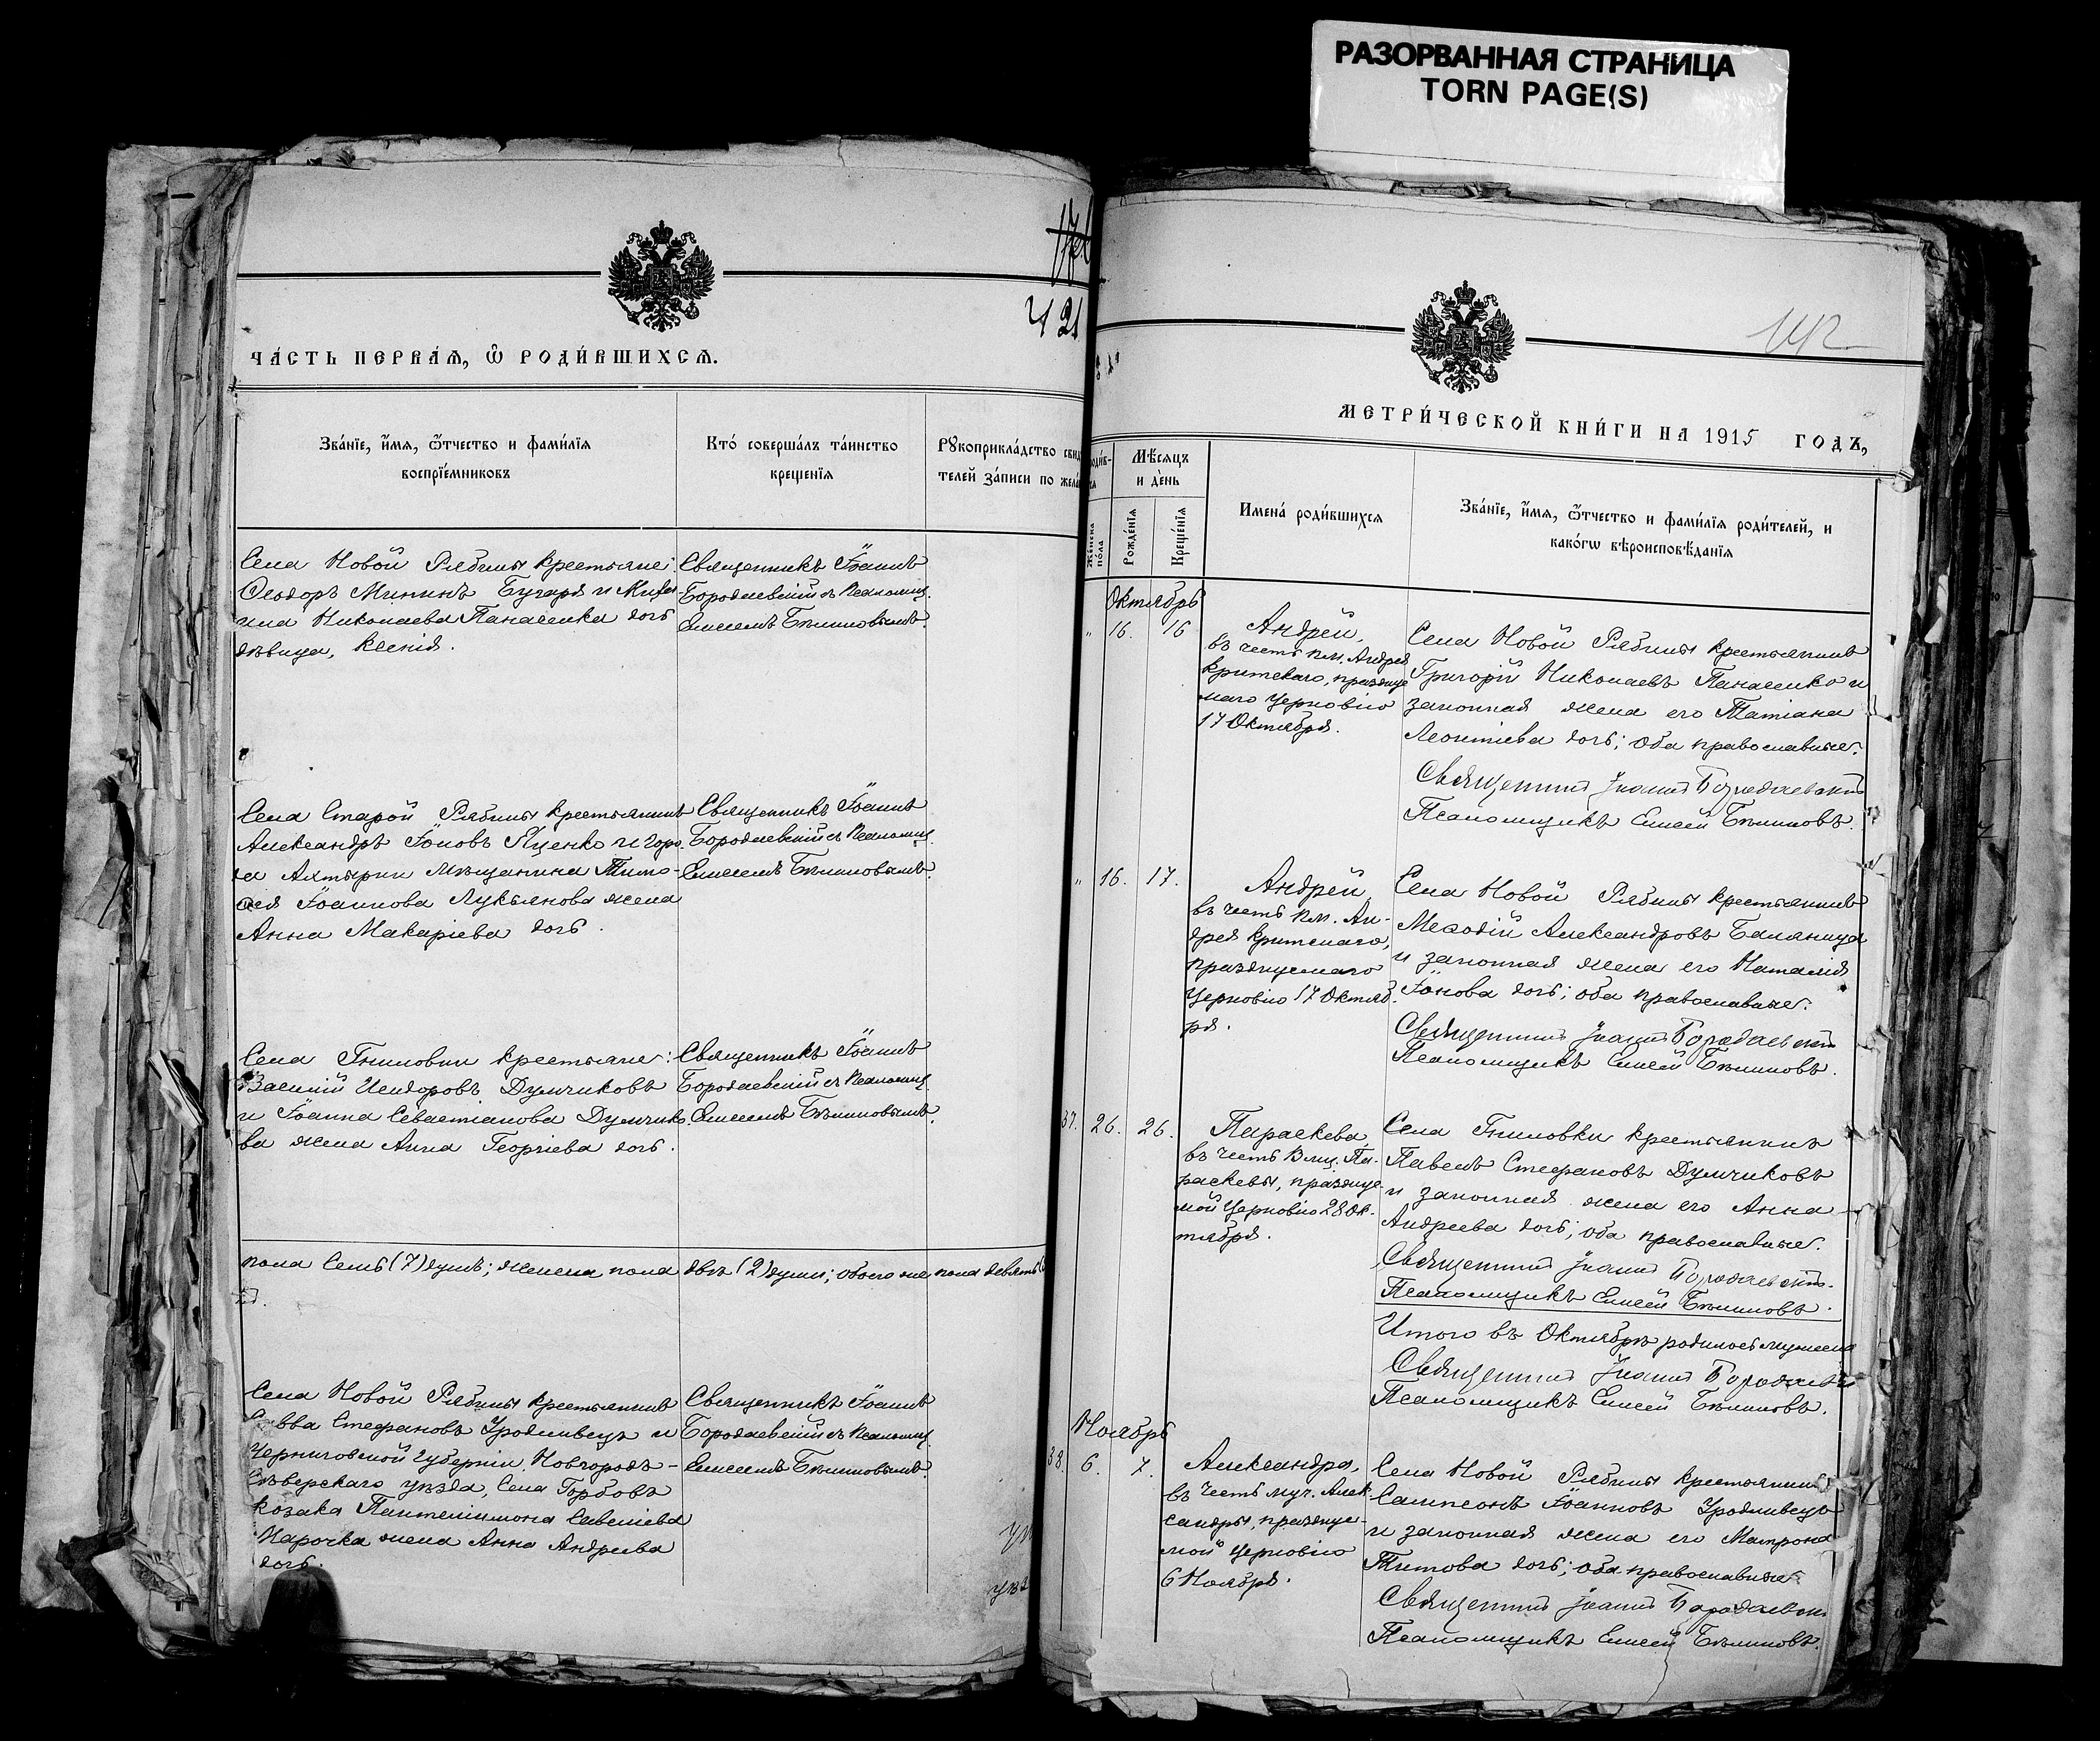 РАЗОРВАННАЯ СТРАНИЦА
TORN PAGE(S)
421
ЧА́СТЬ ПЕРВА́Ѧ, Ѽ РОДИ́ВШИХСѦ.
Зва́нїе, и҆́мѧ, ѻ҆́тчество и фами́лїѧ
воспрїе́мниковъ
Кто́ соверша́лъ та́инство
креще́нїѧ
Рꙋкоприкла́дство свид
телей за́писи по жела
Села Новой Рябины крестьяне:
Ѳеодоръ Мининъ Бугаря и
Николаева Панасенка дочь
дѣвица, Ксенія.
Священникъ Іоаннъ
Бородаевскій съ Псаломщ.
Елисеемъ Бѣлиновымъ.
Села Старой Рябины крестьянинъ
Александръ Іоновъ Яценко и горо-
да Ахтырки мѣщанина Тимо-
ѳея Іоаннова Лукьянова жена
Анна Макаріева дочь.
Священникъ Іоаннъ
Бородаевскій съ Псаломщ.
Елисеемъ Бѣлиновымъ.
Села Гниловки крестьяне:
Василій Исидоровъ Думчиковъ
и Іоанна Севастіанова Думчико-
ва жена Анна Георгіева дочь.
Священникъ Іоаннъ
Бородаевскій съ Псаломщ.
Елисеемъ Бѣлиновымъ.
пола семь (7) душъ; женска пола двѣ (2) души; обоего же пола девять
Села Новой Рябины крестьянинъ
Савва Стефановъ Уродливецъ и
Черниговской губерніи, Новгородъ-
Сѣверскаго уѣзда, села Горбовъ
козака Пантелиимона Савеліева
Марочка жена Анна Андреева
дочь.
Священникъ Іоаннъ
Бородаевскій съ Псаломщ.
Елисеемъ Бѣлиновымъ.
142
МЕТРИ́ЧЕСКОЙ КНИ́ГИ НА 1915 ГОДЪ,
Мѣ́сѧцъ
и де́нь
Же́нска
по́ла
Рожде́нїѧ
Креще́нїѧ
Имена́ роди́вшихсѧ
Зва́нїе, и҆́мѧ, ѻ҆́тчество и фами́лїѧ роди́телей, и
како́гѡ вѣроисповѣ́данїѧ
Октябрь
" 16. 16
Андрей,
въ честь пм. Андрея
Критскаго, празднуе
маго Церковію
17 Октября.
Села Новой Рябины крестьянинъ
Григорій Николаевъ Панасенко и
законная жена его Татіана
Леонтіева дочь; оба православные.
Священникъ Іоаннъ Бородаевскій
Псаломщикъ Елисей Бѣлиновъ.
" 16. 17.
Андрей,
въ честь пм. Ан-
дрея Критскаго,
празднуемаго
Церковію 17 Октяб-
ря.
Села Новой Рябины крестьянинъ
Меѳодій Александровъ Баланица
и законная жена его Наталія
Іонова дочь; оба православные.
Священникъ Іоаннъ Бородаевскій
Псаломщикъ Елисей Бѣлиновъ.
37. 26. 26.
Параскева,
въ честь Влмц. Па-
раскевы, празднуе-
мой Церковію 28 Ок-
тября.
Села Гниловки крестьянинъ
Павелъ Стефановъ Думчиковъ
и законная жена его Анна
Андреева дочь; оба православные.
Священникъ Іоаннъ Бородаевскій
Псаломщикъ Елисей Бѣлиновъ.
Итого въ Октябрѣ родилось мужеска
Священникъ Іоаннъ Бородаевскій
Псаломщикъ Елисей Бѣлиновъ.
Ноябрь
38. 6. 7.
Александра,
въ честь муч. Алек-
сандры, празднуе-
мой Церковію
6 Ноября.
Села Новой Рябины крестьянинъ
Сампсонъ Іоанновъ Уродливецъ
и законная жена его Матрона
Титова дочь; оба православные.
Священникъ Іоаннъ Бородаевскій
Псаломщикъ Елисей Бѣлиновъ.